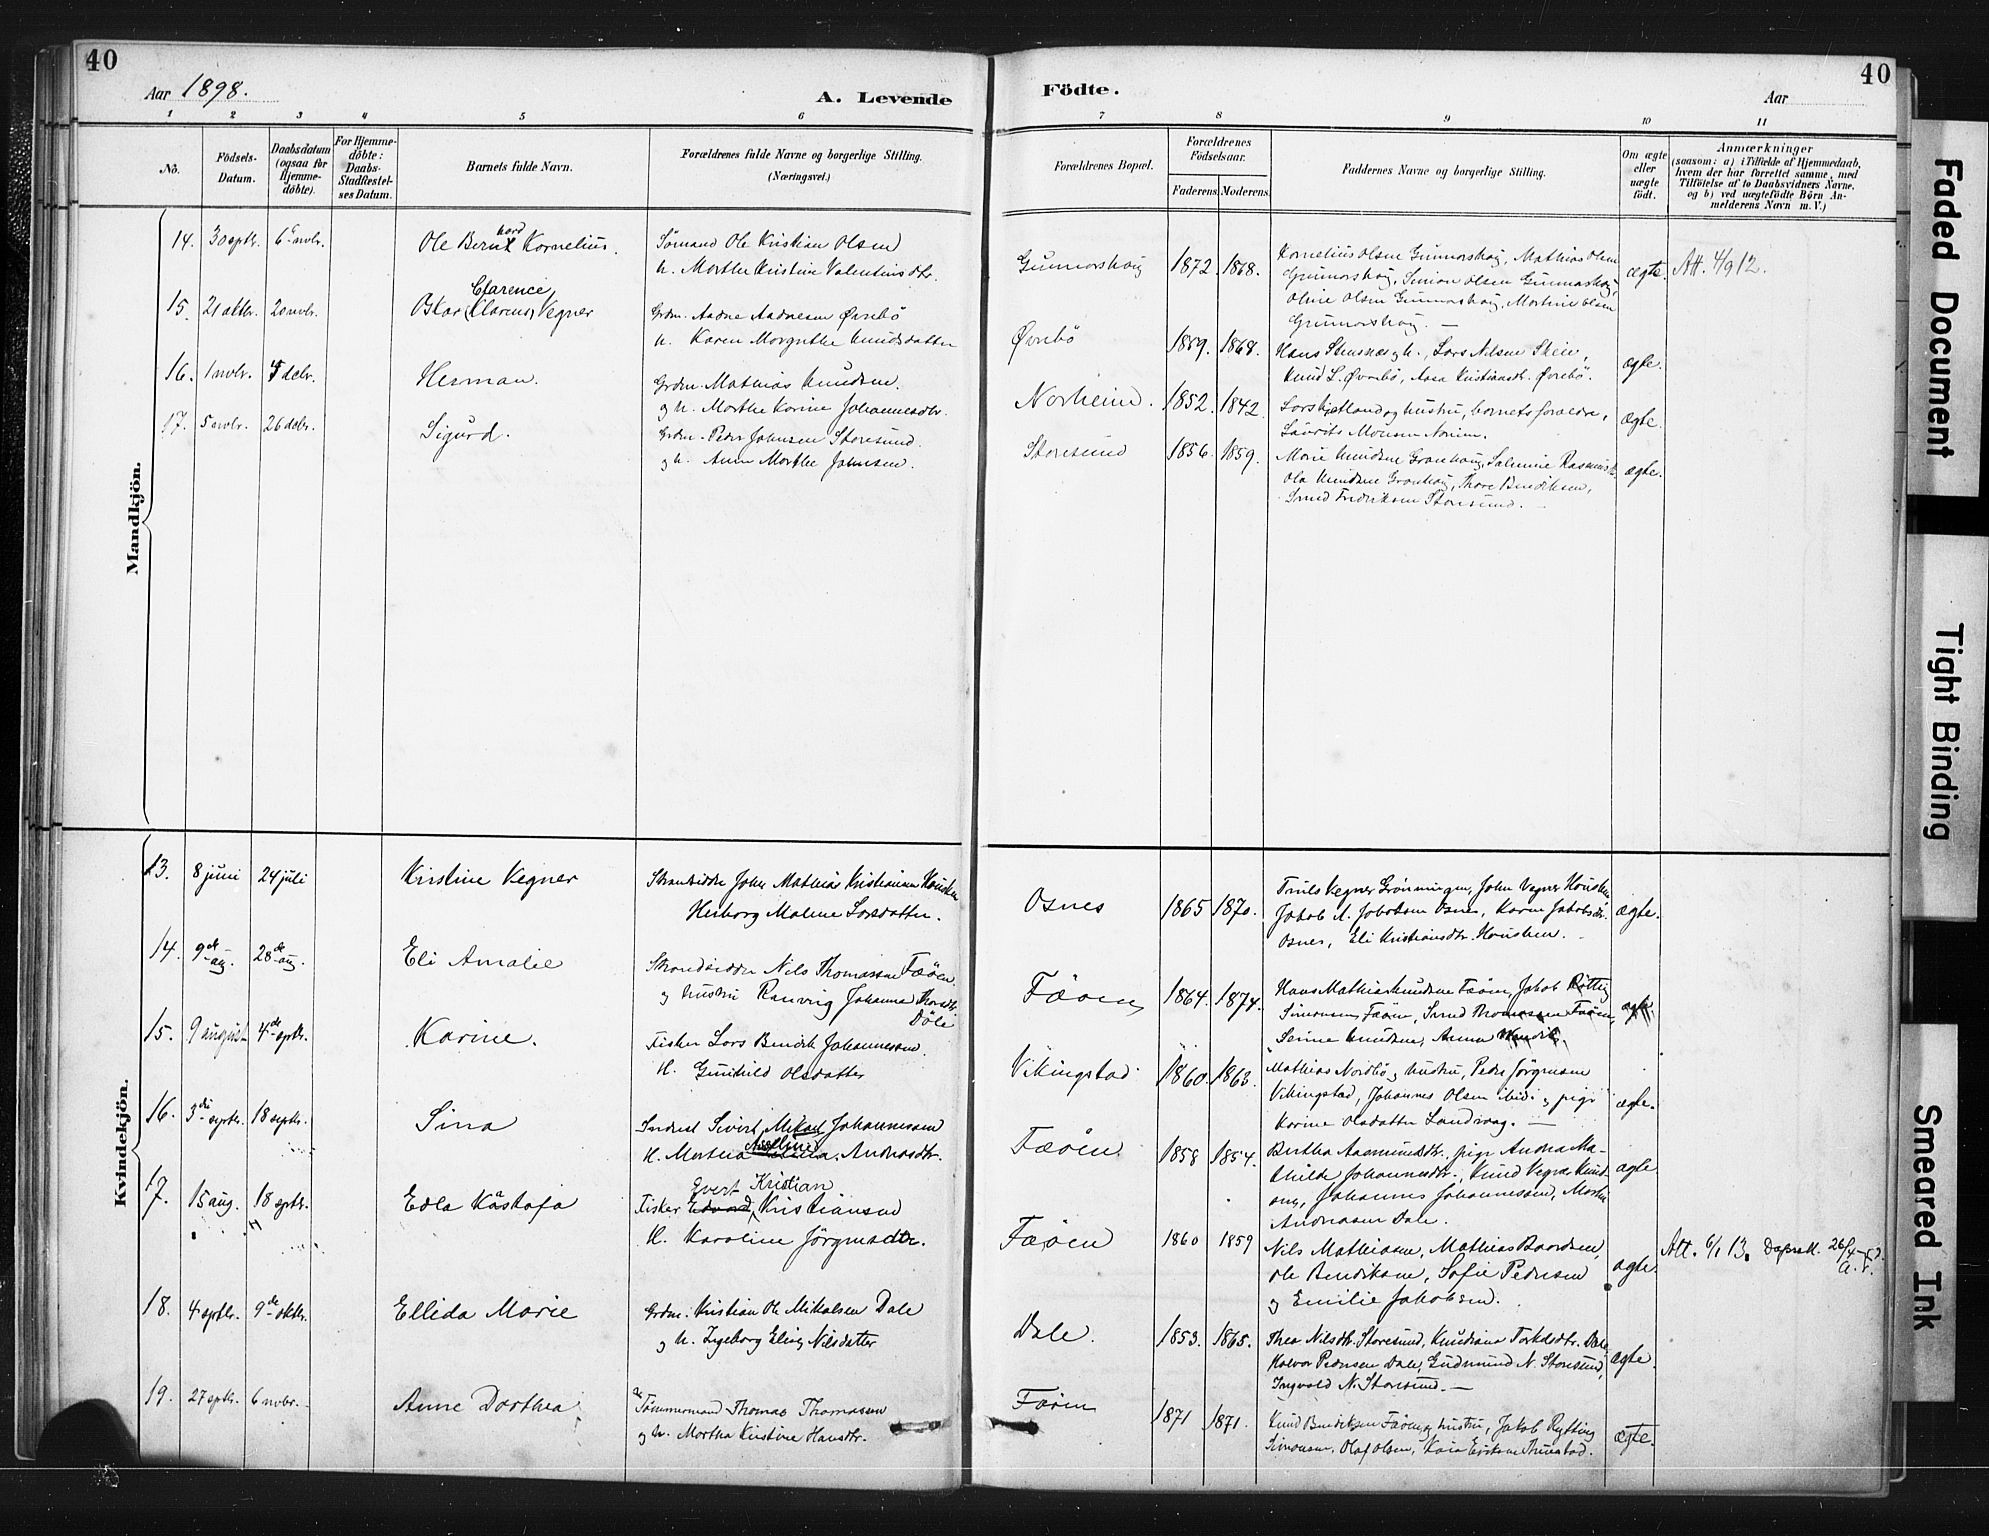 40
Aar 1898.
A. Levende
Födte.
Aar
40
1 2 3 4 5 6 7 8 9 10 11
No.
Födsels-Datum.
Daabsdatum (ogsaa for Hjemme-döbte).
For Hjemme-döbte: Daabs-Stadfæstel-ses Datum.
Barnets fulde Navn.
Forældrenes fulde Navne og borgerlige Stilling.
(Næringsvei.)
Forældrenes Bopæl.
Forældrenes Födselsaar.
Faderens. Moderens.
Faddernes Navne og borgerlige Stilling.
Om ægte eller uægte födt.
Anmærkninger
(saasom: a) i Tilfælde af Hjemmedaab,
hvem der har forrettet samme, med
Tilföielse af to Daabsvidners Navne,
og b) ved uægtefödte Börn An-
melderens Navn m. V.)
Mandkjön.
14. 30 sptr. 6 nvbr. Ole Kornelius.
Sømand Ole Kristian Olsen
h. Marthe Kristine Valentinsdtr.
Gunnarshaug 1872. 1868.
Kornelius Olsen Gunnarshaug, Mathias Olsen
Gunnarshaug, Simon Olsen Gunnarshaug,
Oline Olsen Gunnarshaug, Martine Olsen
Gunnarshaug. —
ægte. Att. 4/9 12.
Clarence
15. 21 oktbr. 20 nvbr. Oskar (Clarens) Vegner
Grdm. Aadne Aadnesen Øvrebö
h. Karen Margrethe Knudsdatter
Øvrebö 1859. 1868.
Hans Stensnes og h., Lars Nilsen Skeie,
Knud L. Øvrebö, Aasa Kristiansdtr. Øvrebö.
ægte.
16. 1 nvbr. dcbr. Herman.
Grdm. Mathias Knudsen.
og h. Marthe Karine Johannesdtr.
Norheim. 1852. 1842.
og hustru, barnets forældre,
Laurits Monsen
ægte.
17. 5 nvbr. 26 dcbr. Sigurd.
Grdm. Peder Johnsen Storesund.
og h. Anne Marthe Johnsen.
Storesund 1856. 1859.
Marie Knudsen Grønhaug,
Ola Knudsen Grønhaug, Thore Bendiksen,
Fredriksen Storesund. —
ægte.
Kvindekjön.
13. 8 juni 24 juli Kristine Vegner
Strandsidder Mathias Kristiansen
Herborg Malene Larsdatter.
Osnes 1865 1870.
Truls Vegner Grønningen, John Vegner
Jakob A. Jakobsen Osnes, Karen Jakobsdtr.
Osnes, Eli Kristiansdtr.
ægte.
14. 9de aug. 28de aug. Eli Amalie
Strandsidder Nils Thomassen Føöen
og hustru Ranveig Johanna Thorsdtr.
Döle
Føöen 1864. 1874.
Hans Mathias Knudsen Føöen, Jakob
Simonsen Føöen, Thomassen Føöen,
Knudsen, Anna
ægte
15. 9 august 4de sptbr. Karine.
Fisker Lars Bendik Johannessen.
H. Gunhild Olsdatter
Vikingstad 1860. 1863.
Mathias Nordbö og hustru, Peder Jörgensen
Vikingstad, Johannes Olsen ibid. og pige
Karine Olsdatter Sandvaag. —
ægte.
16. 3die sptbr. 18 septbr. Sina
Sivert Mikael Johannessen
H. Martha Andreasdtr.
Føöen 1858 1854.
Bertha Aasmundsdtr, pige Andrea Ma-
thilde Johannesdtr., Knud Vegner Knud-
sen, Johannes Johannessen,
Andreasen Dale.
ægte
Evert Kristian
17. 15 aug. 18 sptbr. Edla Kåstafa
Fisker Edvard Kristiansen
H. Karoline Jörgensdtr.
Føöen 1860 1859
Nils Mathiasen, Mathias Baardsen,
Ole Bendiksen, Sofie Pedersen
og Emilie Jakobsen.
ægte. Att. 6/1 13. Dåpsatt. 26/4
18. 4 sptbr. 9de oktbr. Ellida Marie
Grdm. Kristian Ole Mikalsen Dale
og h. Ingeborg Eline Nilsdatter
Dale. 1853. 1865.
Thea Nilsdtr. Storesund, Knudiana Torkelsdtr. Dale,
Halvor Pedersen Dale, Gudmund N. Storesund,
Ingvald N. Storesund. —
ægte.
19. 27 sptbr. 6 nvbr. Anne Dorthea
Tømmermand Thomas Thomassen
og h. Martha Kirstine Hansdtr.
Føöen 1871 1871.
Knud Bendiksen Føöen og hustru, Jakob Rytting
Simonsen, Olaf Olsen,
ægte.
Faded Document
Tight Binding
Smeared Ink